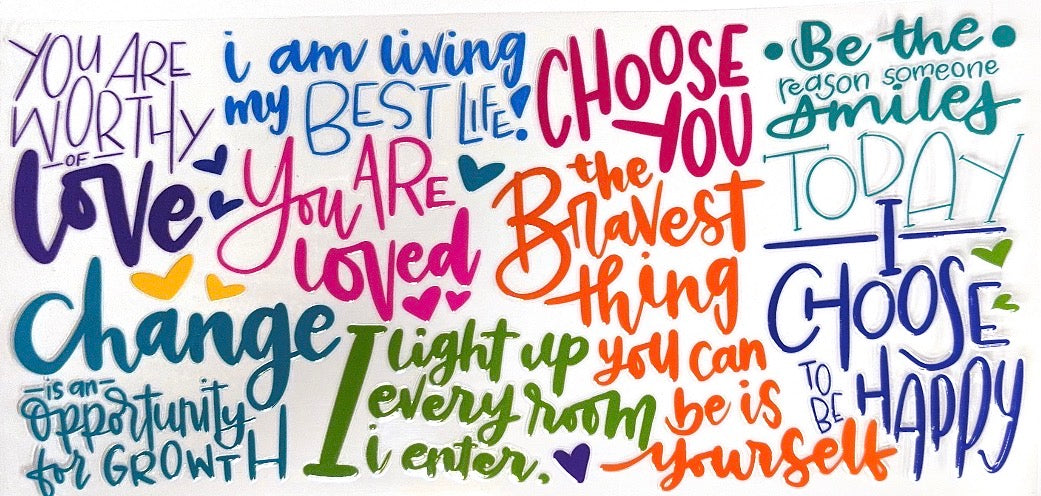 YOU ARE
WORTHY
OF
Love
i am living
my BEST LIFE!
CHOOSE
YOU
Be the
reason someone
smiles
TODAY
You ARE
loved
the
Bravest
thing
you can
be is
yourself
I
CHOOSE
TO
BE
HAPPY
Change
is an
opportunity
for GROWTH
I light up
every room
i enter.